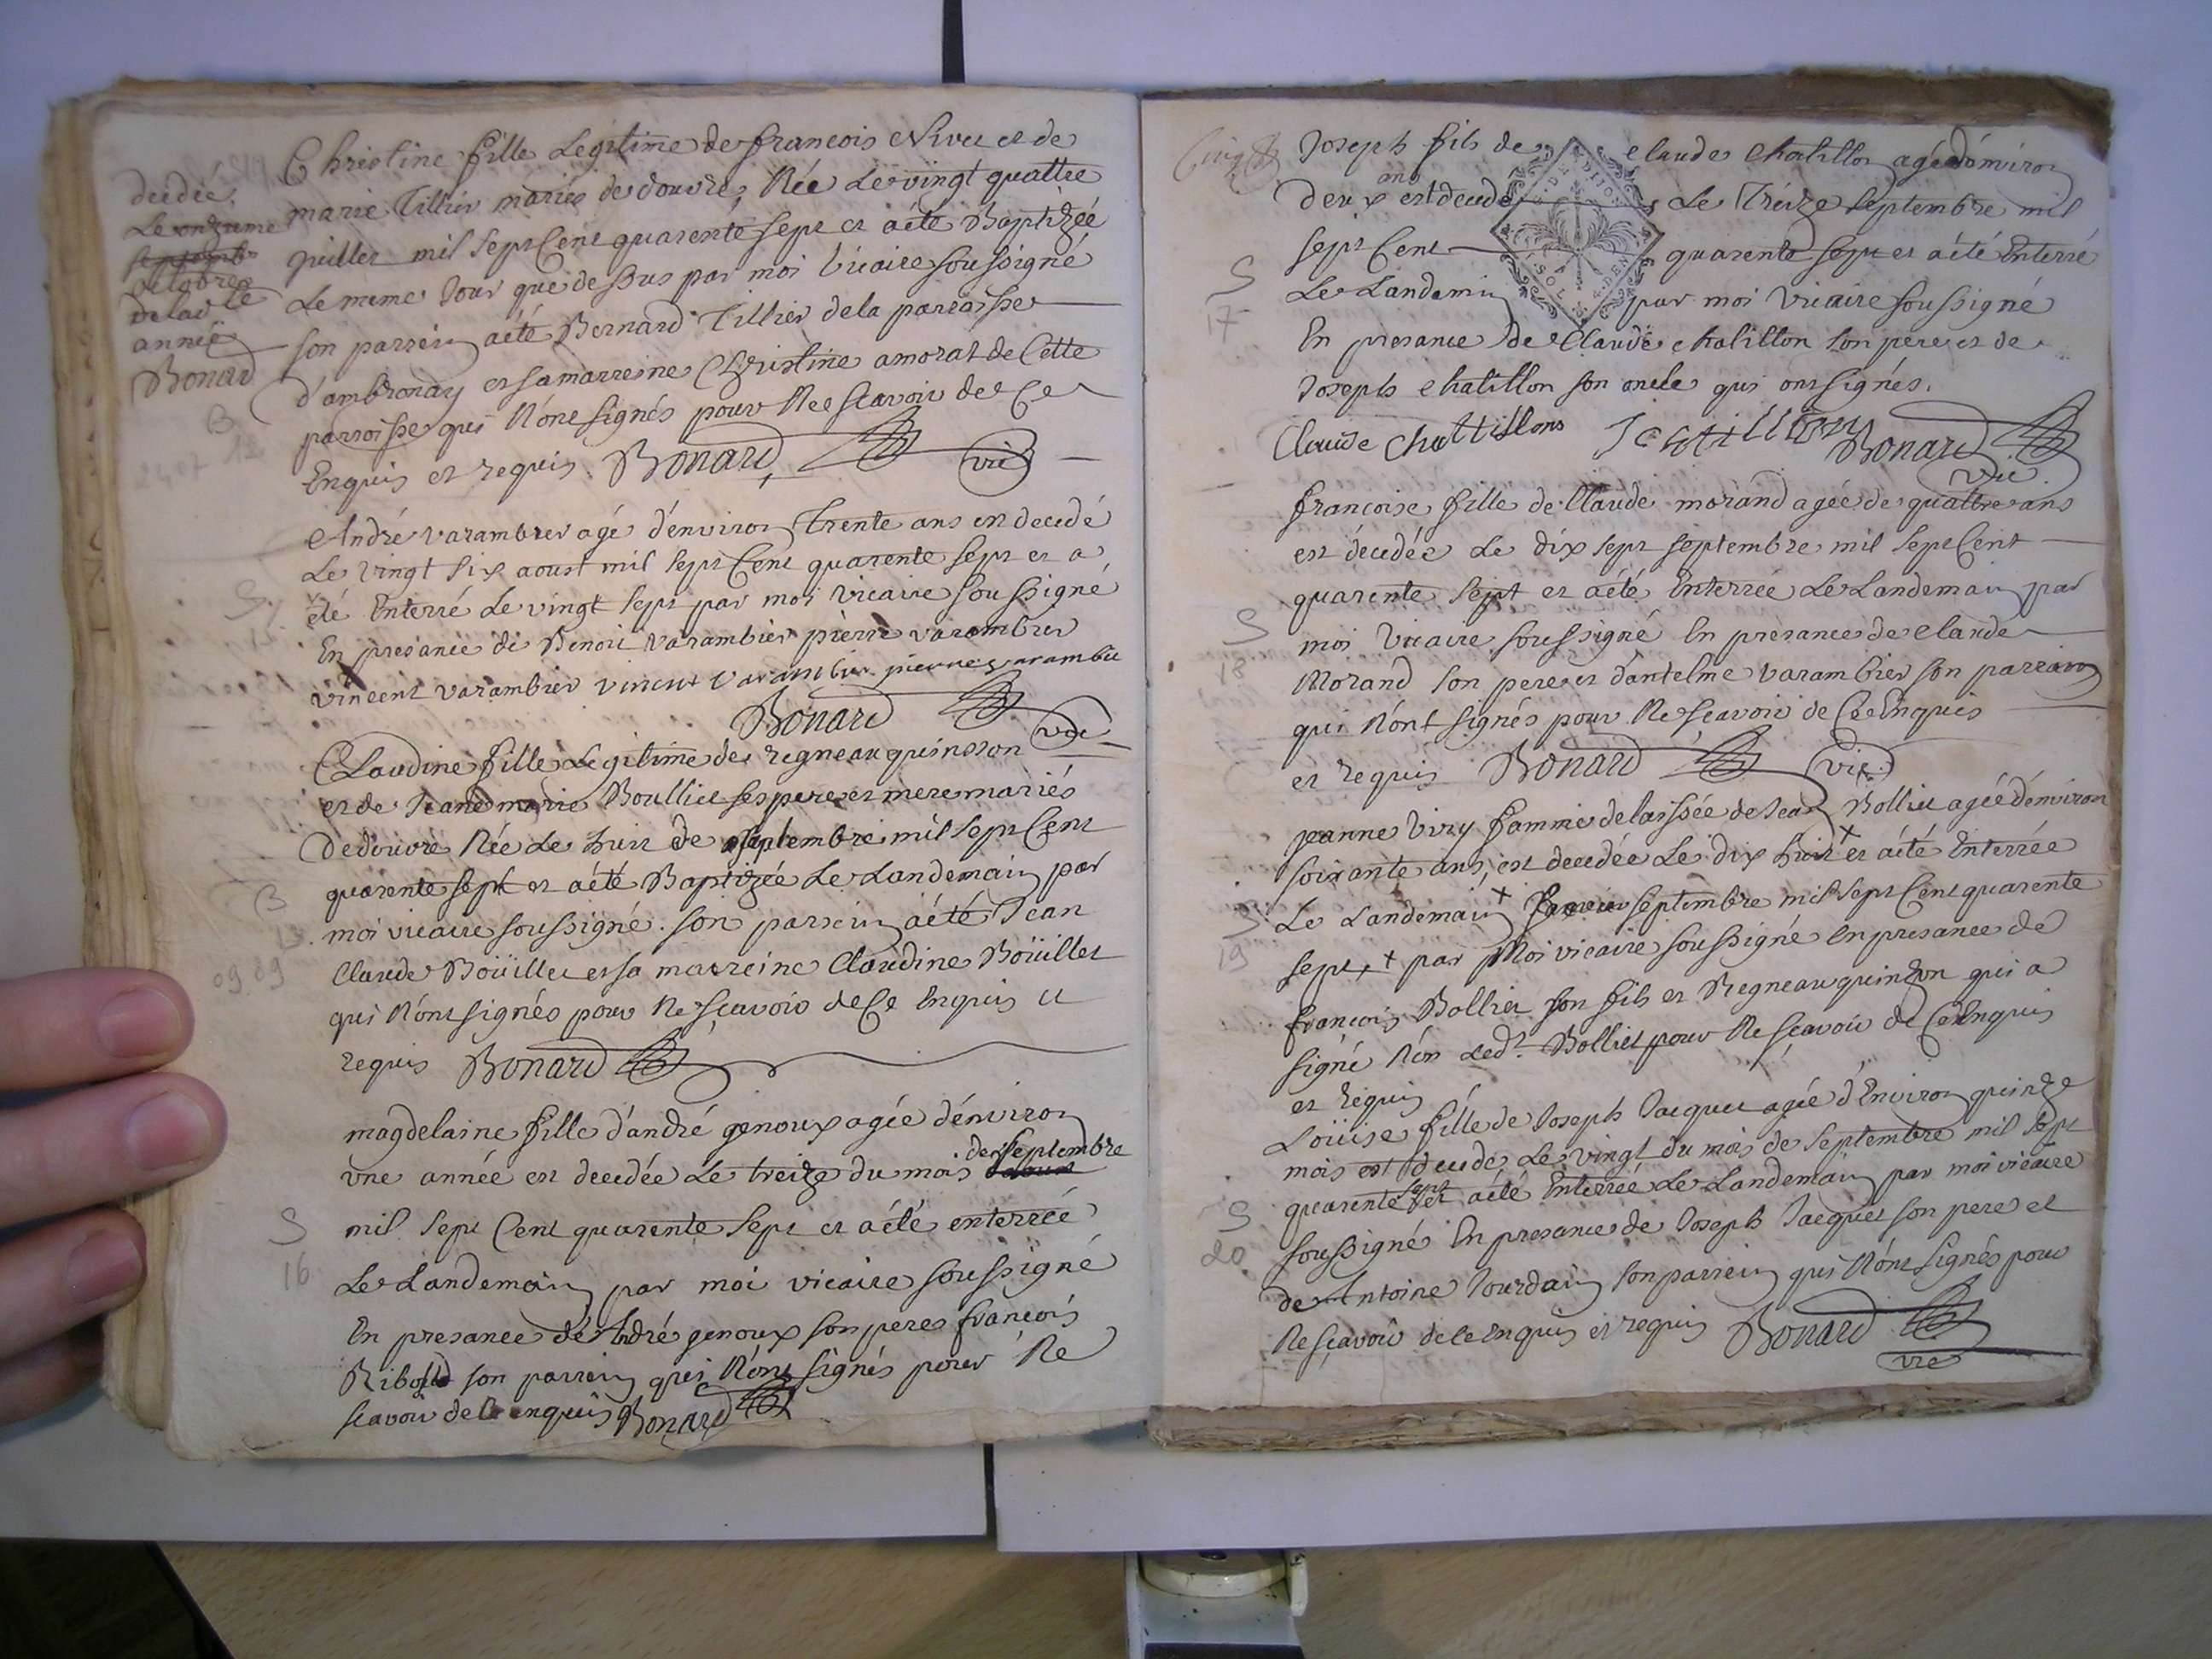 Christine fille Legitime de francois Nivet et de
marie Tillier mariés de douvre, Née Le vingt quattre
juillet mil sept Cent quarente sept et a été Baptizée
Le meme Jour que dessus par moi Vicaire soussigné
son parrein a été Bernard Tillier de la paroisse
d'ambronay et sa marreine Christine amorat de Cette
parroisse qui N'ont signés pour Ne scavoir de Ce
Enquis et requis. Bonard vic
decedée
Le onzieme
septemb
octobre
de lad te
année
Bonard
B
12
24.07
André varambier agé d'environ Trente ans est decedé
Le Vingt six aoust mil sept Cent quarente sept et a
été Enterré Le vingt sept par moi Vicaire soussigné
En presance de Benoit Varambier pierre varambier
vincent varambier vincent varambier pierre varambie
Bonard vic
S
Claudine fille Legitime de regneau quinson
et de Jeane marie Boulliet ses pere et mere mariés
De douvre Née Le huit de septembre mil sept Cent
quarente sept et a été Baptizée Le Landemain par
moi vicaire soussigné. son parrein a été Jean
Claude Boüillet et sa marreine Claudine Boüillet
qui N'ont signés pour Ne scavoir de Ce Enquis et
requis Bonard
B
13.
09.09
magdelaine fille d'andré genoux agée d'environ
une année est decedée Le treize du mois de septembre
mil sept Cent quarente sept et a été enterrée
Le Landemain par moi vicaire soussigné
En presance de André genoux son pere francois
Ribold son parrein qui N'ont signés pour Ne
scavoir de Ce enquis Bonard
S
16
Joseph fils de Claude Chatillon agé d'environ
deux ans est decedé Le Treize septembre mil
sept Cent quarente sept et a été Enterré
Le Landemin par moi Vicaire soussigné
En presance de Claude chatillon son pere et de
Joseph chatillon son oncle qui ont signés.
Claude Chattillons J Chatillion Bonard
vic.
S
17
francoise fille de Claude morand agée de quattre ans
est décedée Le dix sept septembre mil sept Cent
quarente sept et a été Enterrée Le Landemain par
moi Vicaire soussigné En presance de Claude
Morand son pere et d'antelme varambier son parrain
qui N'ont signés pour Ne scavoir de Ce Enquis
et requis Bonard vic.
S
18
jeanne Viry famme delaissée de Jean Bolliet agée d'environ
soixante ans, est decedée Le dix huit + et a été Enterrée
Le Landemain + septembre mil sept Cent quarente
sept, + par Moi vicaire soussigné En presance de
francois Bolliet son fils et Regneau quinson qui a
signé Non Led.t Bolliet pour Ne scavoir de Ce Enquis
et requis
S
19
Loüise fille de Joseph Jacquet agée d'Environ quinze
mois est decedée Le vingt du mois de septembre mil sept
quarente sept et a été Enterrée Le Landemain par moi vicaire
soussigné En presance de Joseph Jacquet son pere et
de Antoine Jourdain son parrein qui N'ont signés pour
Ne scavoir de ce Enquis et requis Bonard
vic
S
20